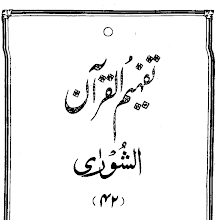 تفہیم القرآن
الشورٰی
(۴۲)